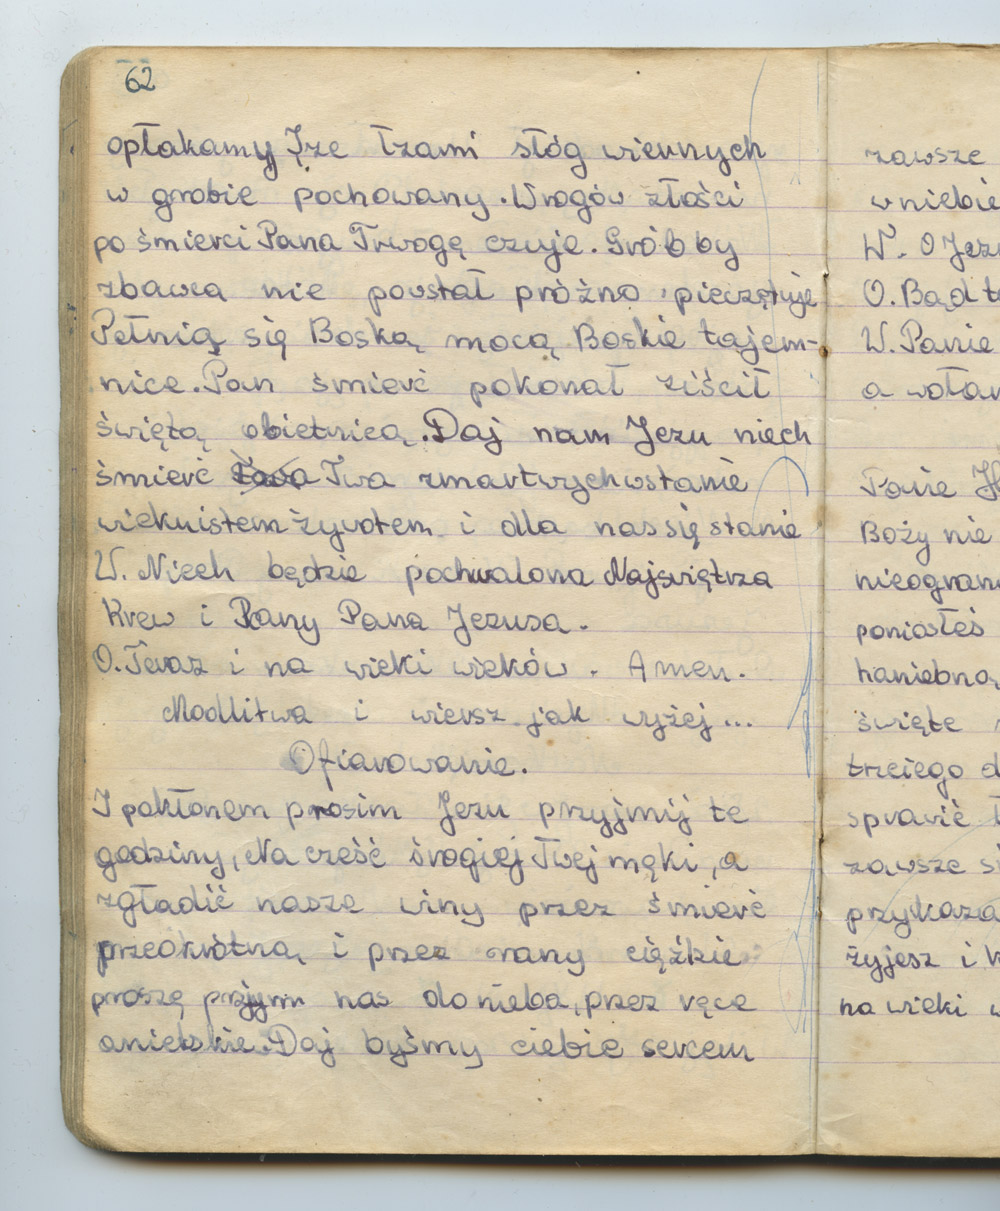 62
opłakamy Jze łzami słóg wiernych
w grobie pochowany. Wrogów złości
po śmierci Pana Trwogę czuje. Grób by
zbawca nie powstał próżno pieczętuje
Pełnią się Boską mocą Boskie tajem-
nice. Pan śmierć pokonał ziścił
świętą obietnicą. Daj nam Jezu niech
śmierć Twa zmartwychwstanie
wiekuistem żywotem i dla nas się stanie
W. Niech będzie pochwalona Najświętrza
Krew i Rany Pana Jezusa.
O. Teraz i na wieki wieków. Amen.
Modlitwa i wiersz jak wyżej...
Ofiarowanie.
I pokłonem prosim Jezu przyjmij te
godziny, Na cześć srogiej Twej męki, a
zgładić nasze winy przez śmierć
przeokrótną i przez rany ciężkie
proszę przyjm nas do nieba, przez ręce
anielskie. Daj byśmy ciebie sercem
zawsze
w niebie
W. O Jezu
O. Bądź
W. Panie
a wołan
Panie
Boży nie
nieogran
poniosłeś
haniebną
święte
trzeciego d
sprawić
zawsze si
przykaza
żyjesz i k
na wieki w